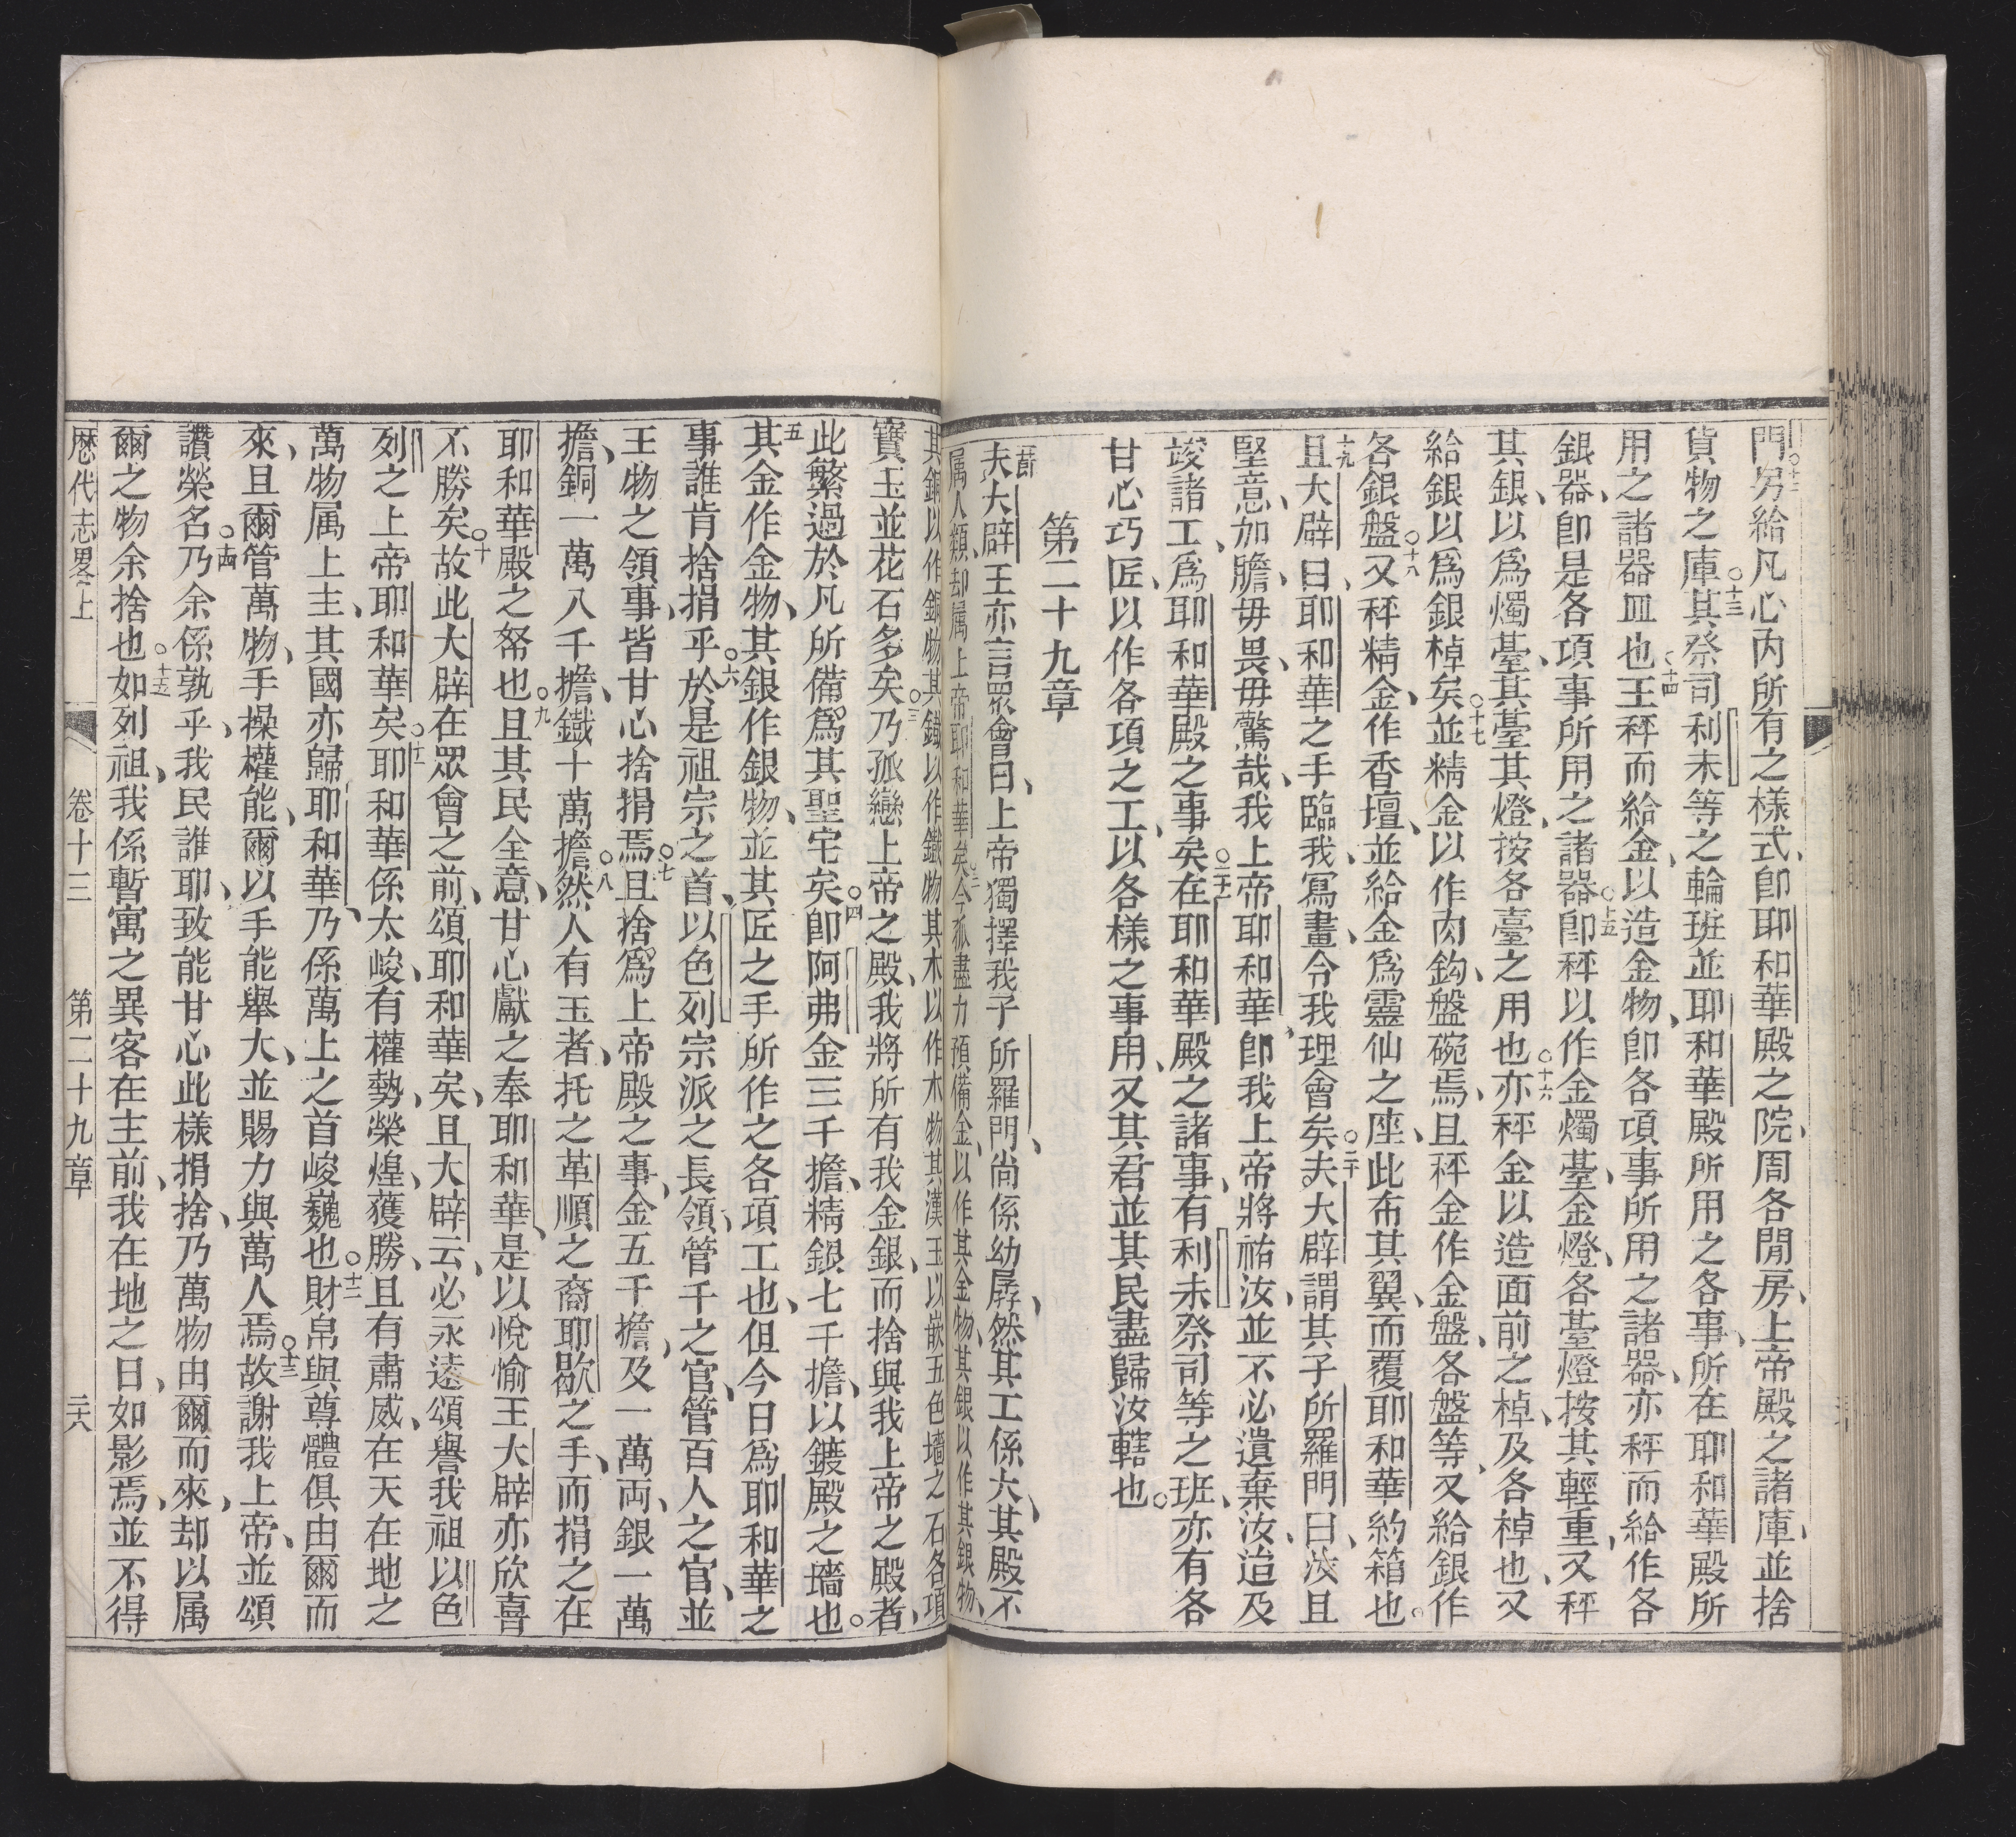 門○十二另給凡心内所有之樣式、卽耶和華殿之院、周各閒房、上帝殿之諸庫、並捨
貨物之庫○十三其祭司利未等之輪班並耶和華殿所用之各事、所在耶和華殿所
用之諸器皿也○十四王秤而給金、以造金物、卽各項事所用之諸器、亦秤而給作各
銀器、卽是各項事所用之諸器○十五卽秤以作金燭臺、金燈、各臺燈按其輕重、又秤
其銀、以爲燭臺、其臺其燈、按各臺之用也○十六亦秤金以造面前之棹、及各棹也、又
給銀以爲銀棹矣○十七並精金以作肉鈎、盤碗焉、且秤金作金盤、各盤等、又給銀作
各銀盤○十八又秤精金、作香壇、並給金爲靈仙之座、此布其翼、而覆耶和華約箱也○
十九且大辟曰、耶和華之手臨我、寫畫、令我理會矣○二十夫大辟謂其子所羅門曰、汝且
堅意、加膽、毋畏、毋驚哉、我上帝耶和華、卽我上帝將祐汝、並不必遺棄汝、迨及
竣諸工、爲耶和華殿之事矣○二十一在耶和華殿之諸事、有利未祭司等之班、亦有各
甘心巧匠、以作各項之工、以各樣之事用、又其君並其民盡歸汝轄也○
第二十九章
一節夫大辟王亦言眾會曰、上帝獨擇我子所羅門、尚係幼孱、然其工係大、其殿不
属人類、却属上帝耶和華矣○二今我盡力預備金、以作其金物、其銀以作其銀物、
其銅以作銅物、其鐵以作鐵物、其木以作木物、其漢玉以嵌五色墻之石、各項
寶玉並花石多矣○三乃孤戀上帝之殿、我將所有我金銀、而捨與我上帝之殿者、
此繁過於凡所備爲其聖宅矣○四卽阿弗金三千擔、精銀七千擔、以鍍殿之墻也○
五其金作金物、其銀作銀物、並其匠之手所作之各項工也、但今日爲耶和華之
事、誰肯捨捐乎○六於是祖宗之首、以色列宗派之長領、管千之官、管百人之官、並
王物之領事、皆甘心捨捐焉○七且捨爲上帝殿之事、金五千擔、及一萬両、銀一萬
擔、銅一萬八千擔、鐵十萬擔○八然人有玉者、托之革順之裔耶歇之手、而捐之在
耶和華殿之帑也○九且其民全意、甘心獻之奉耶和華、是以悅愉、王大辟亦欣喜
不勝矣○十故此大辟在眾會之前、頌耶和華矣、且大辟云、必永遠頌譽我祖以色
列之上帝耶和華矣○十一耶和華係太峻、有權勢、榮煌、獲勝、且有肅威、在天在地之
萬物属上主、其國亦歸耶和華、乃係萬上之首峻巍也○十二財帛與尊體俱由爾而
來、且爾管萬物、手操權能、爾以手能舉大、並賜力與萬人焉○十三故謝我上帝、並頌
讚榮名○十四乃余係孰乎、我民誰耶、致能甘心此樣捐捨、乃萬物由爾而來、却以属
爾之物余捨也○十五如列祖、我係暫寓之異客在主前、我在地之日、如影焉、並不得
歷代志畧上　卷十三　第二十九章　二六